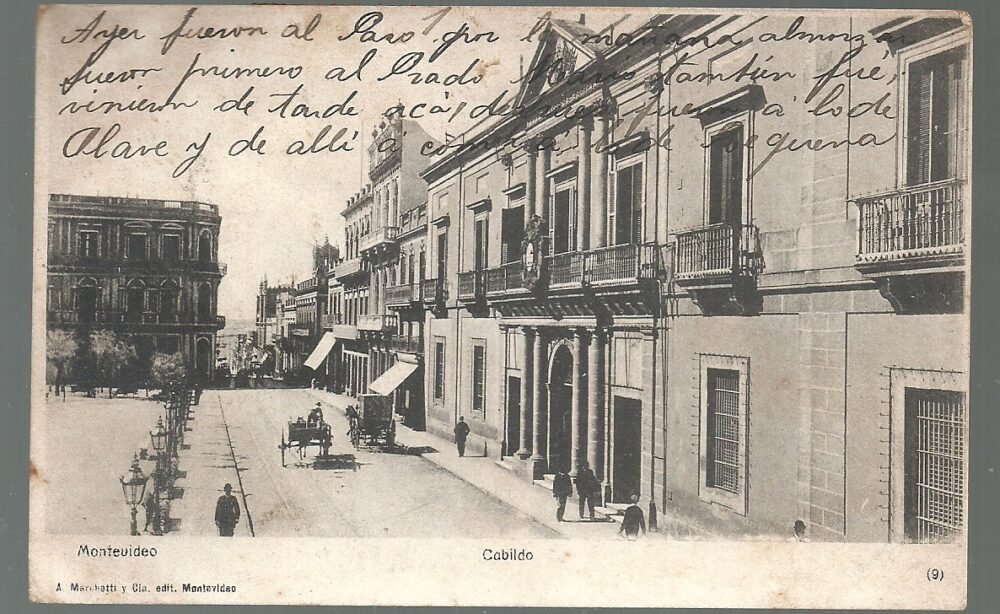 Ayer fueron al Paso, por la mañana almorzar
fueron primero al Prado Mario también fué,
vinieron de tarde acá, después fueron á lo de
Alave y de allí á comida á lo de
Montevideo
Cabildo
(9)
A. Marchetti y Cia. edit. Montevideo